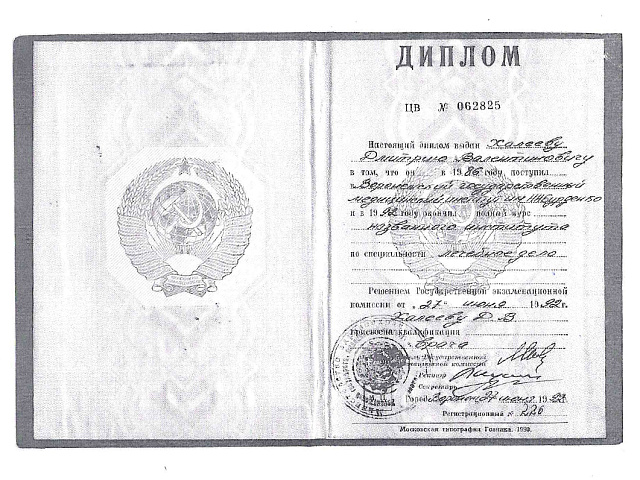 ДИПЛОМ
ЦВ № 062825
Настоящий диплом выдан Халееву
Дмитрию Валентиновичу
в том, что он в 1986 году поступил
в Воронежский государственный
медицинский институт им Н.Н. Бурденко
и в 1992 году окончил полный курс
названного института
по специальности лечебное дело
Решением Государственной экзаменационной
комиссии от " 27 " июня 1992 г.
Халееву Д. В.
присвоена квалификация
врача
Председатель Государственной
экзаменационной комиссии
Ректор
Секретарь
Город Воронеж 27 июня 1992
Регистрационный № 226
Московская типография Гознака. 1990.